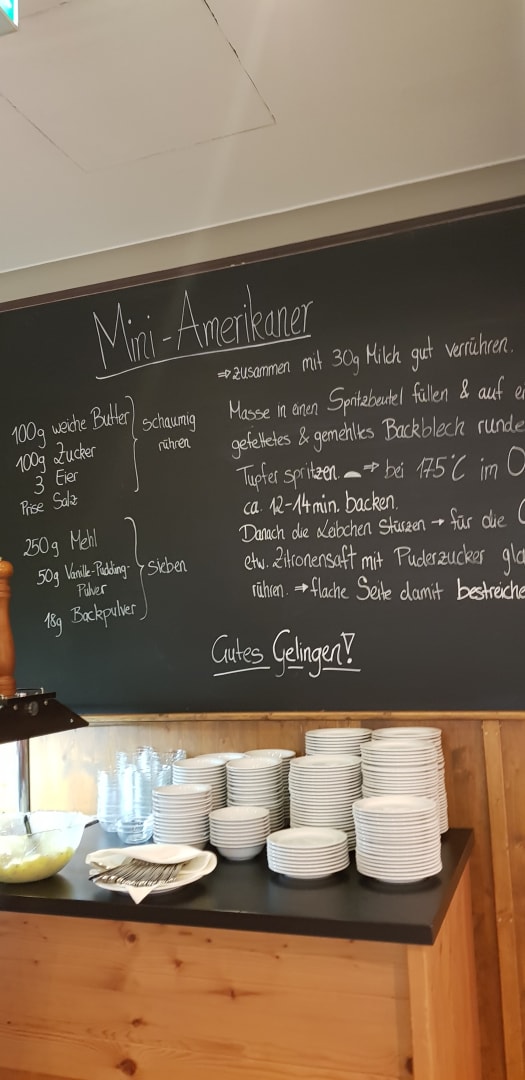 Mini-Amerikaner
100g weiche Butter
100g Zucker
3 Eier
Prise Salz
schaumig
rühren
250g Mehl
50g Vanille-Pudding-
Pulver
18g Backpulver
Sieben
⇒ zusammen mit 30g Milch gut verrühren.
Masse in einen Spritzbeutel füllen & auf
gefettetes & gemehltes Backblech runde
Tupfer spritzen ⇒ bei 175°C im
ca. 12-14min. backen.
Danach die Laibchen stürzen → für die
etw. Zitronensaft mit Puderzucker
rühren. ⇒ flache Seite damit bestreiche
Gutes Gelingen!